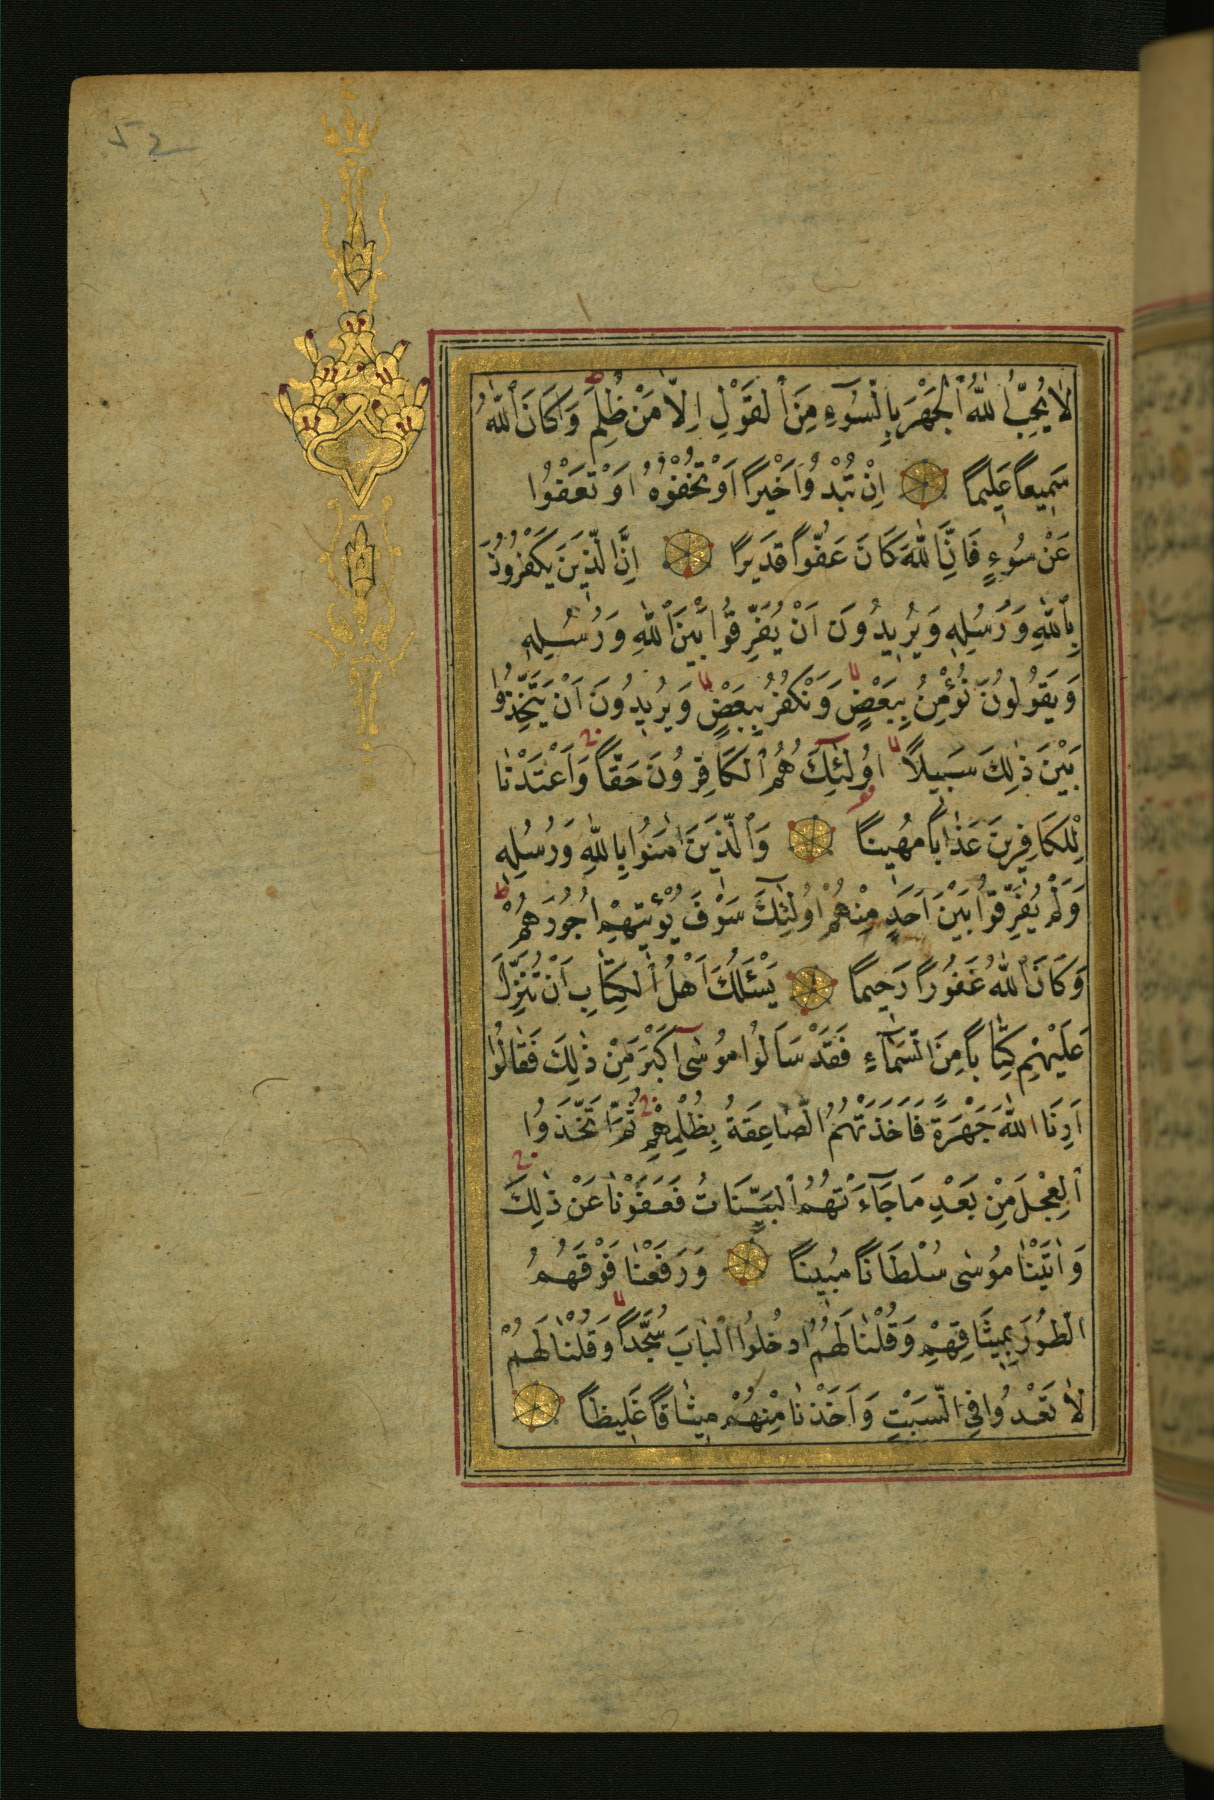 ٥٢
لَا يُحِبُّ اللّٰهُ الْجَهْرَ بِالسُّوٓءِ مِنَ الْقَوْلِ اِلَّا مَنْ ظُلِمَ وَكَانَ اللّٰهُ
سَمِيعاً عَلِيماً اِنْ تُبْدُوا خَيْراً اَوْ تُخْفُوْهُ اَوْ تَعْفُوْا
عَنْ سُوٓءٍ فَاِنَّ اللّٰهَ كَانَ عَفُوّاً قَدِيرًا اِنَّ الَّذِينَ يَكْفُرُونَ
بِاللّٰهِ وَرُسُلِهٖ وَيُرِيدُونَ اَنْ يُفَرِّقُوا بَيْنَ اللّٰهِ وَرُسُلِهٖ
وَيَقُولُونَ نُؤْمِنُ بِبَعْضٍ وَنَكْفُرُ بِبَعْضٍ وَيُرِيدُونَ اَنْ يَتَّخِذُوا
بَيْنَ ذٰلِكَ سَبِيلاً اُولٰٓئِكَ هُمُ الْكَافِرُونَ حَقّاً وَاَعْتَدْنَا
لِلْكَافِرِينَ عَذَاباً مُهِيناً وَالَّذِينَ اٰمَنُوا بِاللّٰهِ وَرُسُلِهٖ
وَلَمْ يُفَرِّقُوا بَيْنَ اَحَدٍ مِنْهُمْ اُولٰٓئِكَ سَوْفَ يُؤْتِيهِمْ اُجُورَهُمْ
وَكَانَ اللّٰهُ غَفُوراً رَحِيماً يَسْئَلُكَ اَهْلُ الْكِتَابِ اَنْ تُنَزِّلَ
عَلَيْهِمْ كِتَاباً مِنَ السَّمَآءِ فَقَدْ سَاَلُوا مُوسٰٓى اَكْبَرَ مِنْ ذٰلِكَ فَقَالُٓوا
اَرِنَا اللّٰهَ جَهْرَةً فَاَخَذَتْهُمُ الصَّاعِقَةُ بِظُلْمِهِمْ ثُمَّ اتَّخَذُوا
الْعِجْلَ مِنْ بَعْدِ مَا جَآءَتْهُمُ الْبَيِّنَاتُ فَعَفَوْنَا عَنْ ذٰلِكَ
وَاٰتَيْنَا مُوسٰى سُلْطَاناً مُبِيناً وَرَفَعْنَا فَوْقَهُمُ
الطُّورَ بِمِيثَاقِهِمْ وَقُلْنَا لَهُمُ ادْخُلُوا الْبَابَ سُجَّداً وَقُلْنَا لَهُمْ
لَا تَعْدُوا فِي السَّبْتِ وَاَخَذْنَا مِنْهُمْ مِيثَاقاً غَلِيظاً